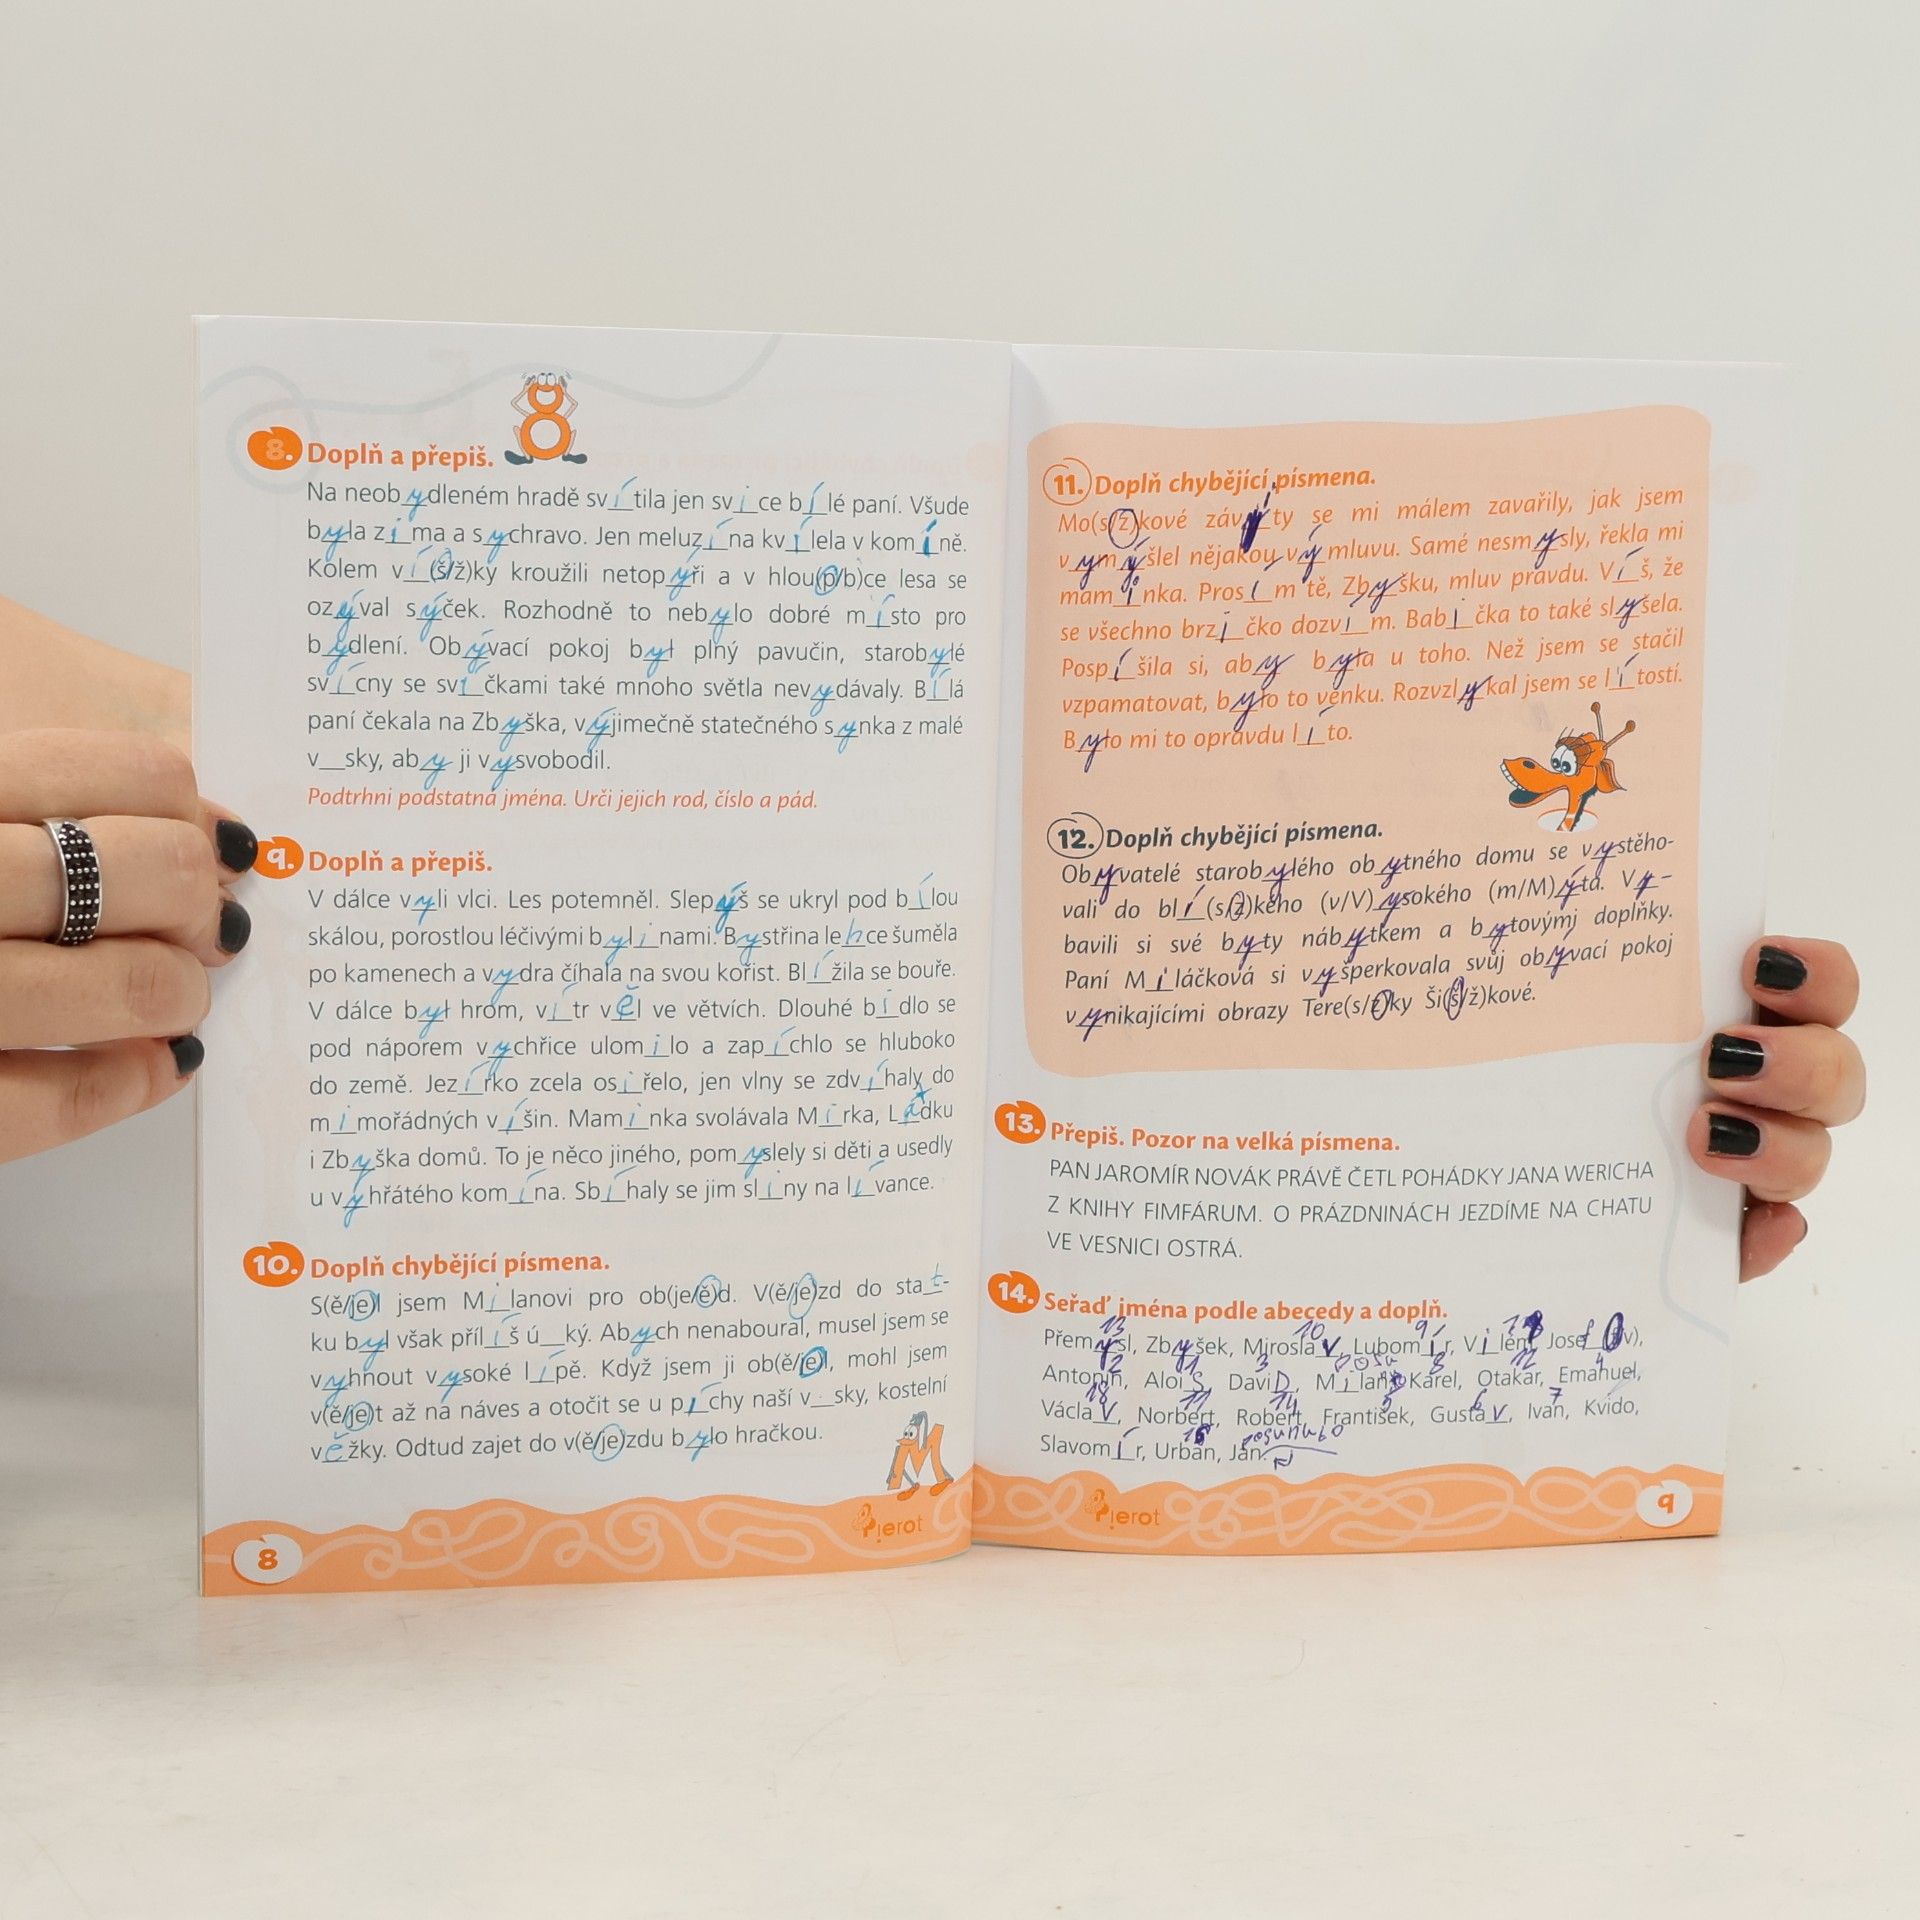 8
8. Doplň a přepiš.
Na neobydleném hradě svítila jen svice bílé paní. Všude
byla zima a sychravo. Jen meluzína kvílela v komíně.
Kolem ví(š/ž)ky kroužili netopyři a v hlou(p/b)ce lesa se
ozýval sýček. Rozhodně to nebylo dobré místo pro
bydlení. Obývací pokoj byl plný pavučin, starobylé
svícny se svíčkami také mnoho světla nevydávaly. Bílá
paní čekala na Zbyška, výjimečně statečného synka z malé
v__sky, aby ji vysvobodil.
Podtrhni podstatná jména. Urči jejich rod, číslo a pád.
9. Doplň a přepiš.
V dálce vyli vlci. Les potemněl. Slepýš se ukryl pod bílou
skálou, porostlou léčivými bylinami. Bystřina lehce šuměla
po kamenech a vydra číhala na svou kořist. Blížila se bouře.
V dálce byl hrom, vítr věl ve větvích. Dlouhé bidlo se
pod náporem vychřice ulomilo a zapíchlo se hluboko
do země. Jezírko zcela osiřelo, jen vlny se zdvíhaly do
mimořádných víšin. Maminka svolávala Mirka, Láďku
i Zbyška domů. To je něco jiného, pomyslely si děti a usedly
u vyhřátého komína. Sbíhaly se jim sliny na lívance.
10. Doplň chybějící písmena.
S(ě/je)l jsem Milanovi pro ob(je/ě)d. V(ě/je)zd do stat-
ku byl však příliš ú__ký. Abych nenaboural, musel jsem se
vyhnout vysoké lípě. Když jsem ji ob(ě/je)l, mohl jsem
v(ě/je)t až na náves a otočit se u píchy naší v__sky, kostelní
věžky. Odtud zajet do v(ě/je)zdu bylo hračkou.
M
Pierot
8
11. Doplň chybějící písmena.
Mo(s/z)kové závity se mi málem zavařily, jak jsem
vymýšlel nějakou výmluvu. Samé nesmysly, řekla mi
maminka. Prosím tě, Zbyšku, mluv pravdu. Víš, že
se všechno brzičko dozvim. Babička to také slyšela.
Pospíšila si, aby byla u toho. Než jsem se stačil
vzpamatovat, bylo to venku. Rozvzlykal jsem se lítostí.
Bylo mi to opravdu líto.
12. Doplň chybějící písmena.
Obyvatelé starobylého obytného domu se vystěho-
vali do blí(s/z)kého (v/V)ysokého (m/M)ýta. Vy-
bavili si své byty nábytkem a bytovými doplňky.
Paní Miláčková si vyšperkovala svůj obývací pokoj
vynikajícími obrazy Tere(s/z)ky Ši(š/ž)kové.
13. Přepiš. Pozor na velká písmena.
PAN JAROMÍR NOVÁK PRÁVĚ ČETL POHÁDKY JANA WERICHA
Z KNIHY FIMFÁRUM. O PRÁZDNINÁCH JEZDÍME NA CHATU
VE VESNICI OSTRÁ.
14. Seřaď jména podle abecedy a doplň.
13 10 9
Přemysl, Zbyšek, Miroslav, Lubomír, Vilém, Josef (f/v),
2 1 3 8 12 4
Antonín, Alois, DaviD, Milan, Karel, Otakar, Emanuel,
18 11 14 5 6 7
Václav, Norbert, Robert, František, Gustav, Ivan, Kvido,
Slavomír, Urban, Jan.
Pierot
9